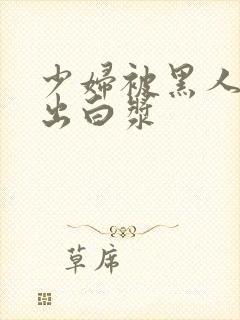 少婦被黑人
出白漿
草席